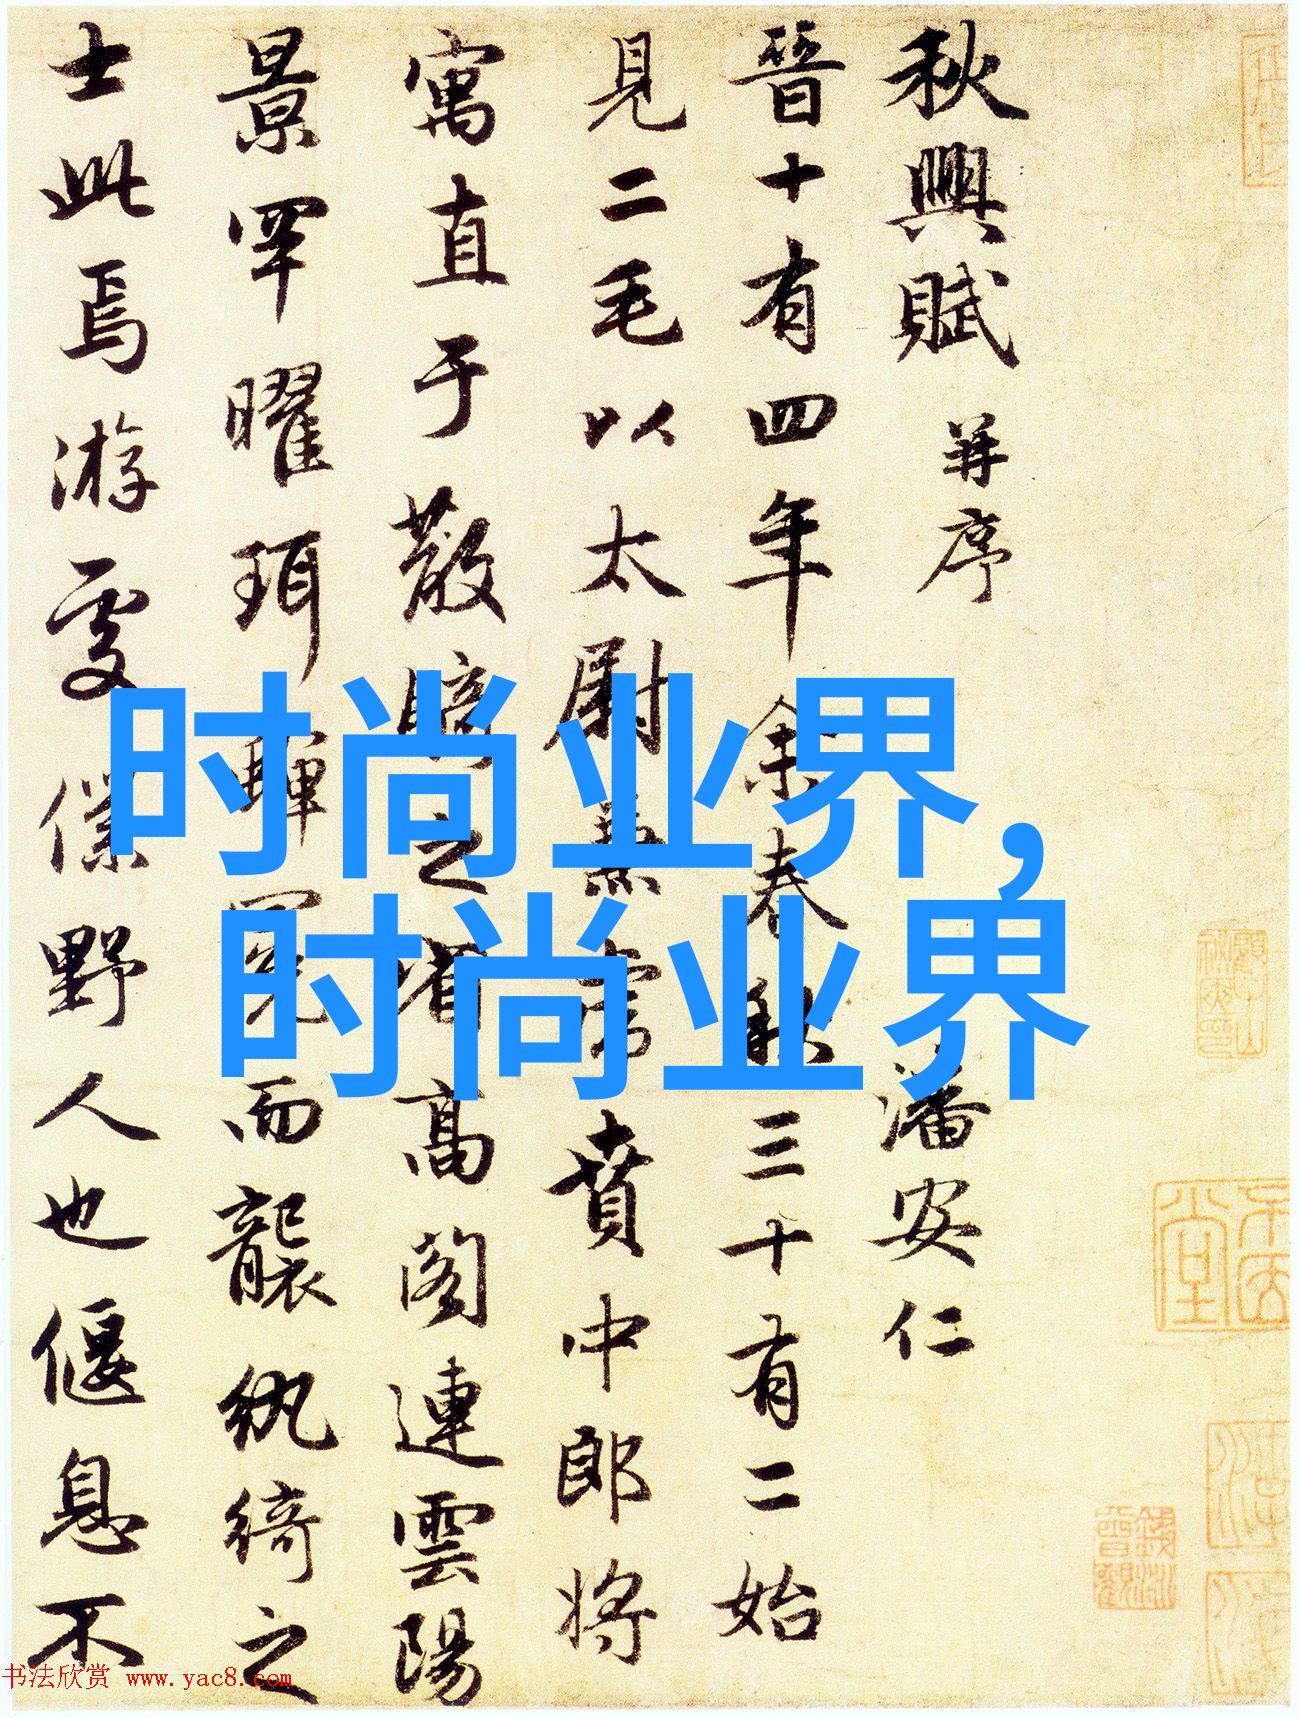 秋興賦 并序 潘安仁
晉十有四年余春秋三十有二始
見二毛以太尉掾兼虎賁中郎将
寓直于散騎之省髙阁連雲陽
景罕曜珥蟬冕而襲紈綺之
士此焉游處僕野人也偃息不
时尚业界,
时尚业界
书法欣赏 www.yac8.com